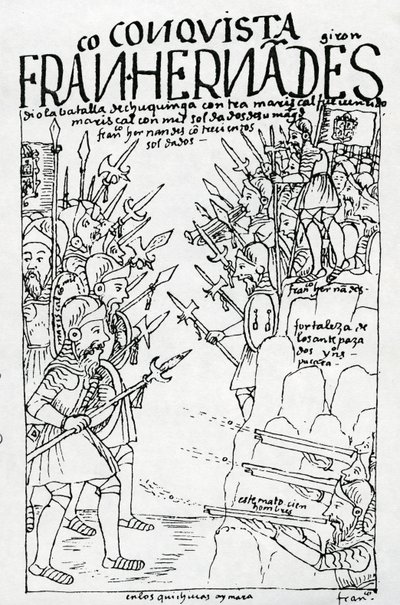 CO CONQVISTA
giron
FRAN HERNĀDES
dio la batalla de chuquinga contra mariscal fue uencido
mariscal con mil soldados de su mag
fran.co hernandes cō trecientos
soldados
mariscal
fran.co hernādes
fortaleza de
los antepaza
dos yn̄s
pucara
este mato cien
hombres
en los quichiuas aymara
fran.co